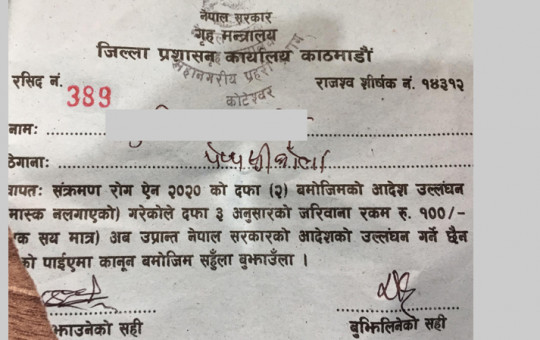 नेपाल सरकार
गृह मन्त्रालय
जिल्ला प्रशासन कार्यालय काठमाडौं
महानगरीय प्रहरी
कोटेश्वर
रसिद नं. 389 राजश्व शीर्षक नं. १४३१२
नामः
ठेगानाः
वापतः संक्रमण रोग ऐन २०२० को दफा (२) बमोजिमको आदेश उल्लंघन
मास्क नलगाएको) गरेकोले दफा ३ अनुसारको जरिवाना रकम रु. १००/-
क सय मात्र) अब उप्रान्त नेपाल सरकारको आदेशको उल्लंघन गर्ने छैन
को पाईएमा कानून बमोजिम सहुँला बुझाउँला ।
झाउनेको सही बुझिलिनेको सही